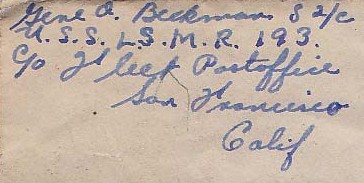 Gene A. Beekman S 2/c
U.S.S. L.S.M.R. 193.
C/o Fleet Postoffice
San Francisco
Calif